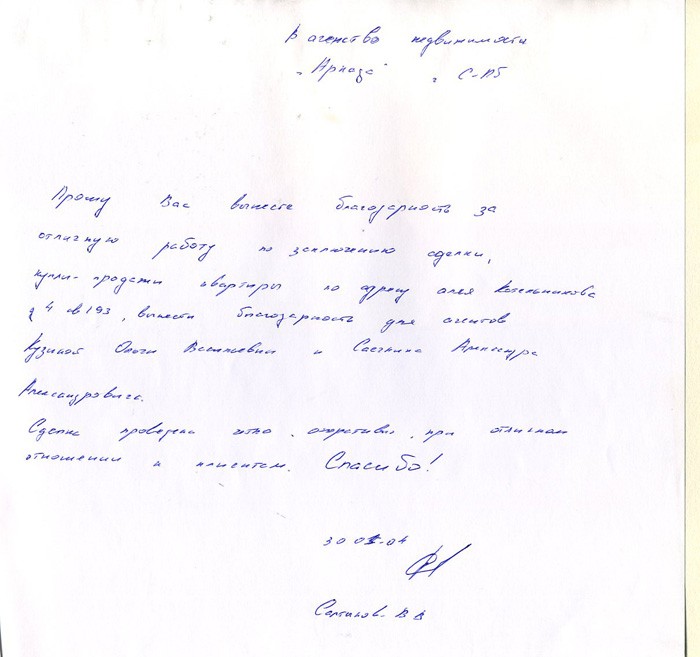 В агенство недвижимости
г С-Пб
Прошу Вас вынести благодарность за
отличную работу по заключению сделки,
купли-продажи квартиры по адресу аллея Котельникова
д 4 кв 193, вынести благодарность для агентов
Кузиной Ольги Васильевны и
Александровича.
Сделка проведена четко, оперативно, при отличном
отношении к клиентам. Спасибо!